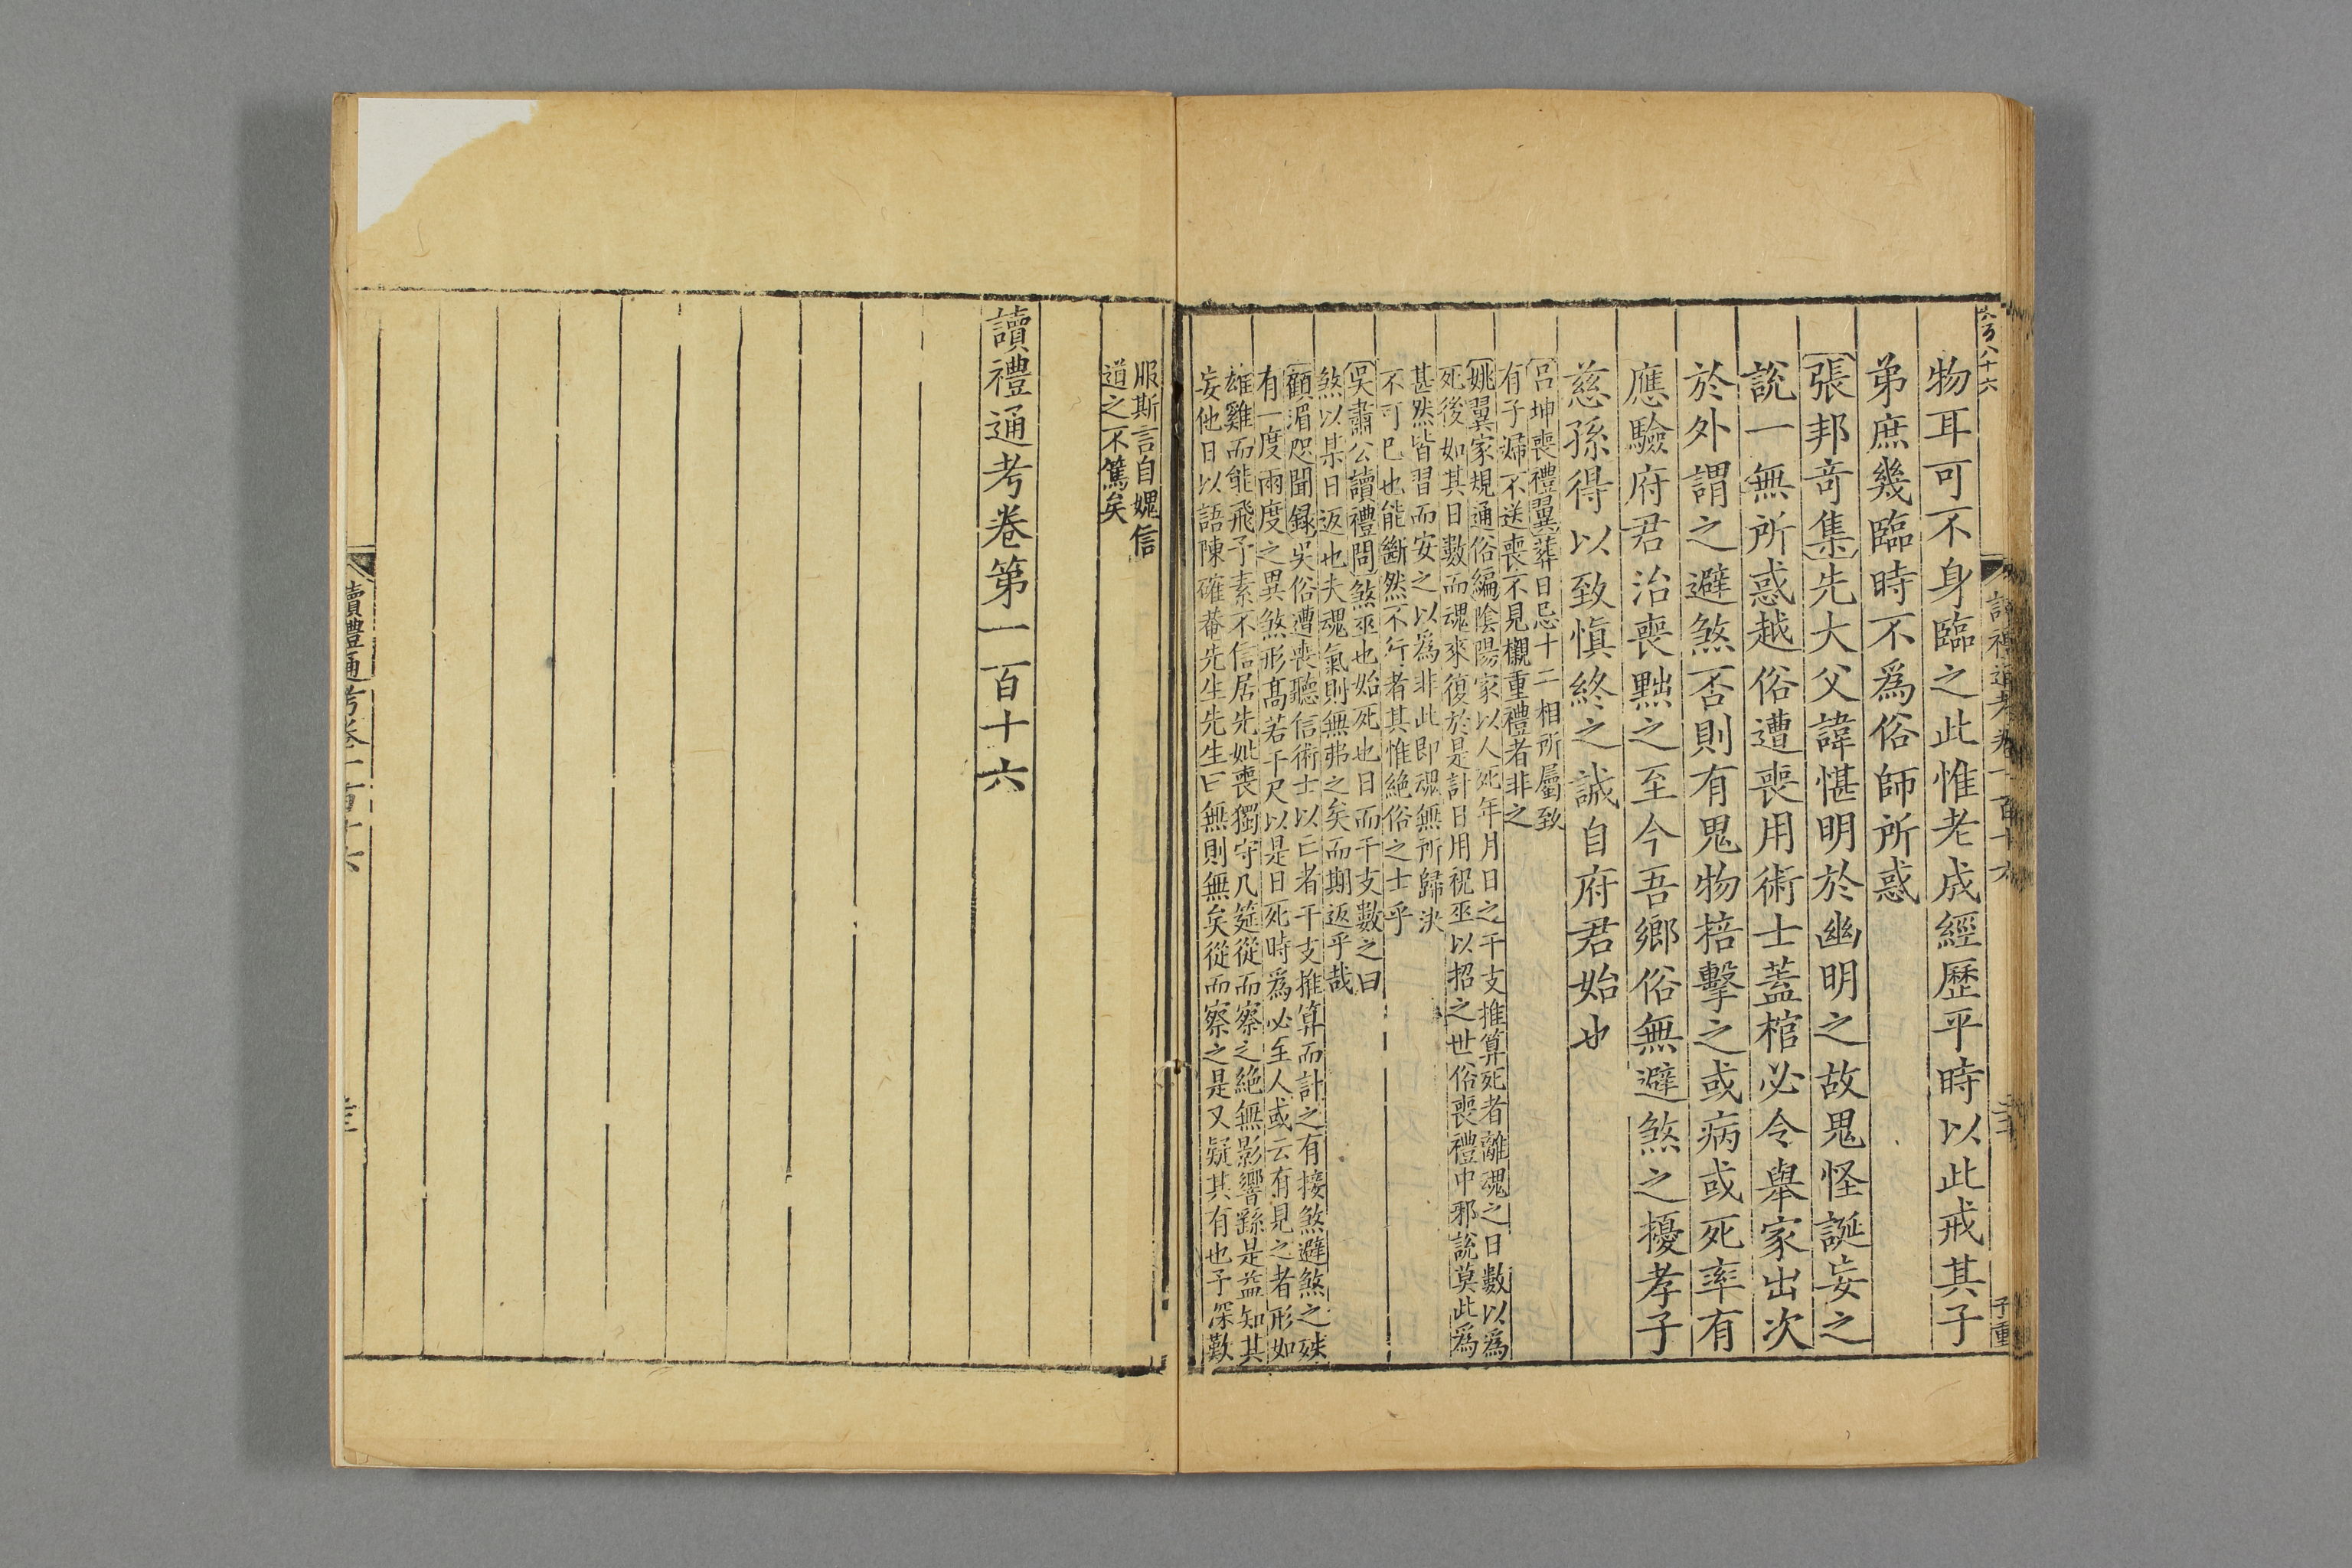 物耳可不身臨之此惟老成經歷平時以此戒其子
弟庶幾臨時不爲俗師所惑
張邦竒集先大父諱愖明於幽明之故鬼怪誕妄之
說一無所惑越俗遭喪用術士蓋棺必令舉家出次
於外謂之避煞否則有鬼物掊擊之或病或死率有
應驗府君治喪黜之至今吾鄉俗無避煞之擾孝子
慈孫得以致愼終之誠自府君始也
呂坤喪禮翼葬日忌十二相所屬致
有子婦不送喪不見櫬重禮者非之
姚翼家規通俗編陰陽家以人死年月日之干支推算死者離魂之日數以爲
死後如其日數而魂來復於是計日用祝巫以招之世俗喪禮中邪說莫此爲
甚然皆習而安之以爲非此即魂無所歸決
不可巳也能斷然不行者其惟絕俗之士乎
吳肅公讀禮問煞巫也始死也日而干支數之曰
煞以某日返也夫魂氣則無弗之矣而期返乎哉
顧湄咫聞錄吳俗遭喪聽信術士以亡者干支推算而計之有接煞避煞之殊
有一度兩度之異煞形髙若干尺以是日死時爲必至人或云有見之者形如
雄雞而能飛予素不信居先妣喪獨守几筵從而察之絕無影響繇是益知其
妄他日以語陳確菴先生先生曰無則無矣從而察之是又疑其有也予深歎
服斯言自媿信
道之不篤矣
讀禮通考卷第一百十六
讀禮通考卷一百十六